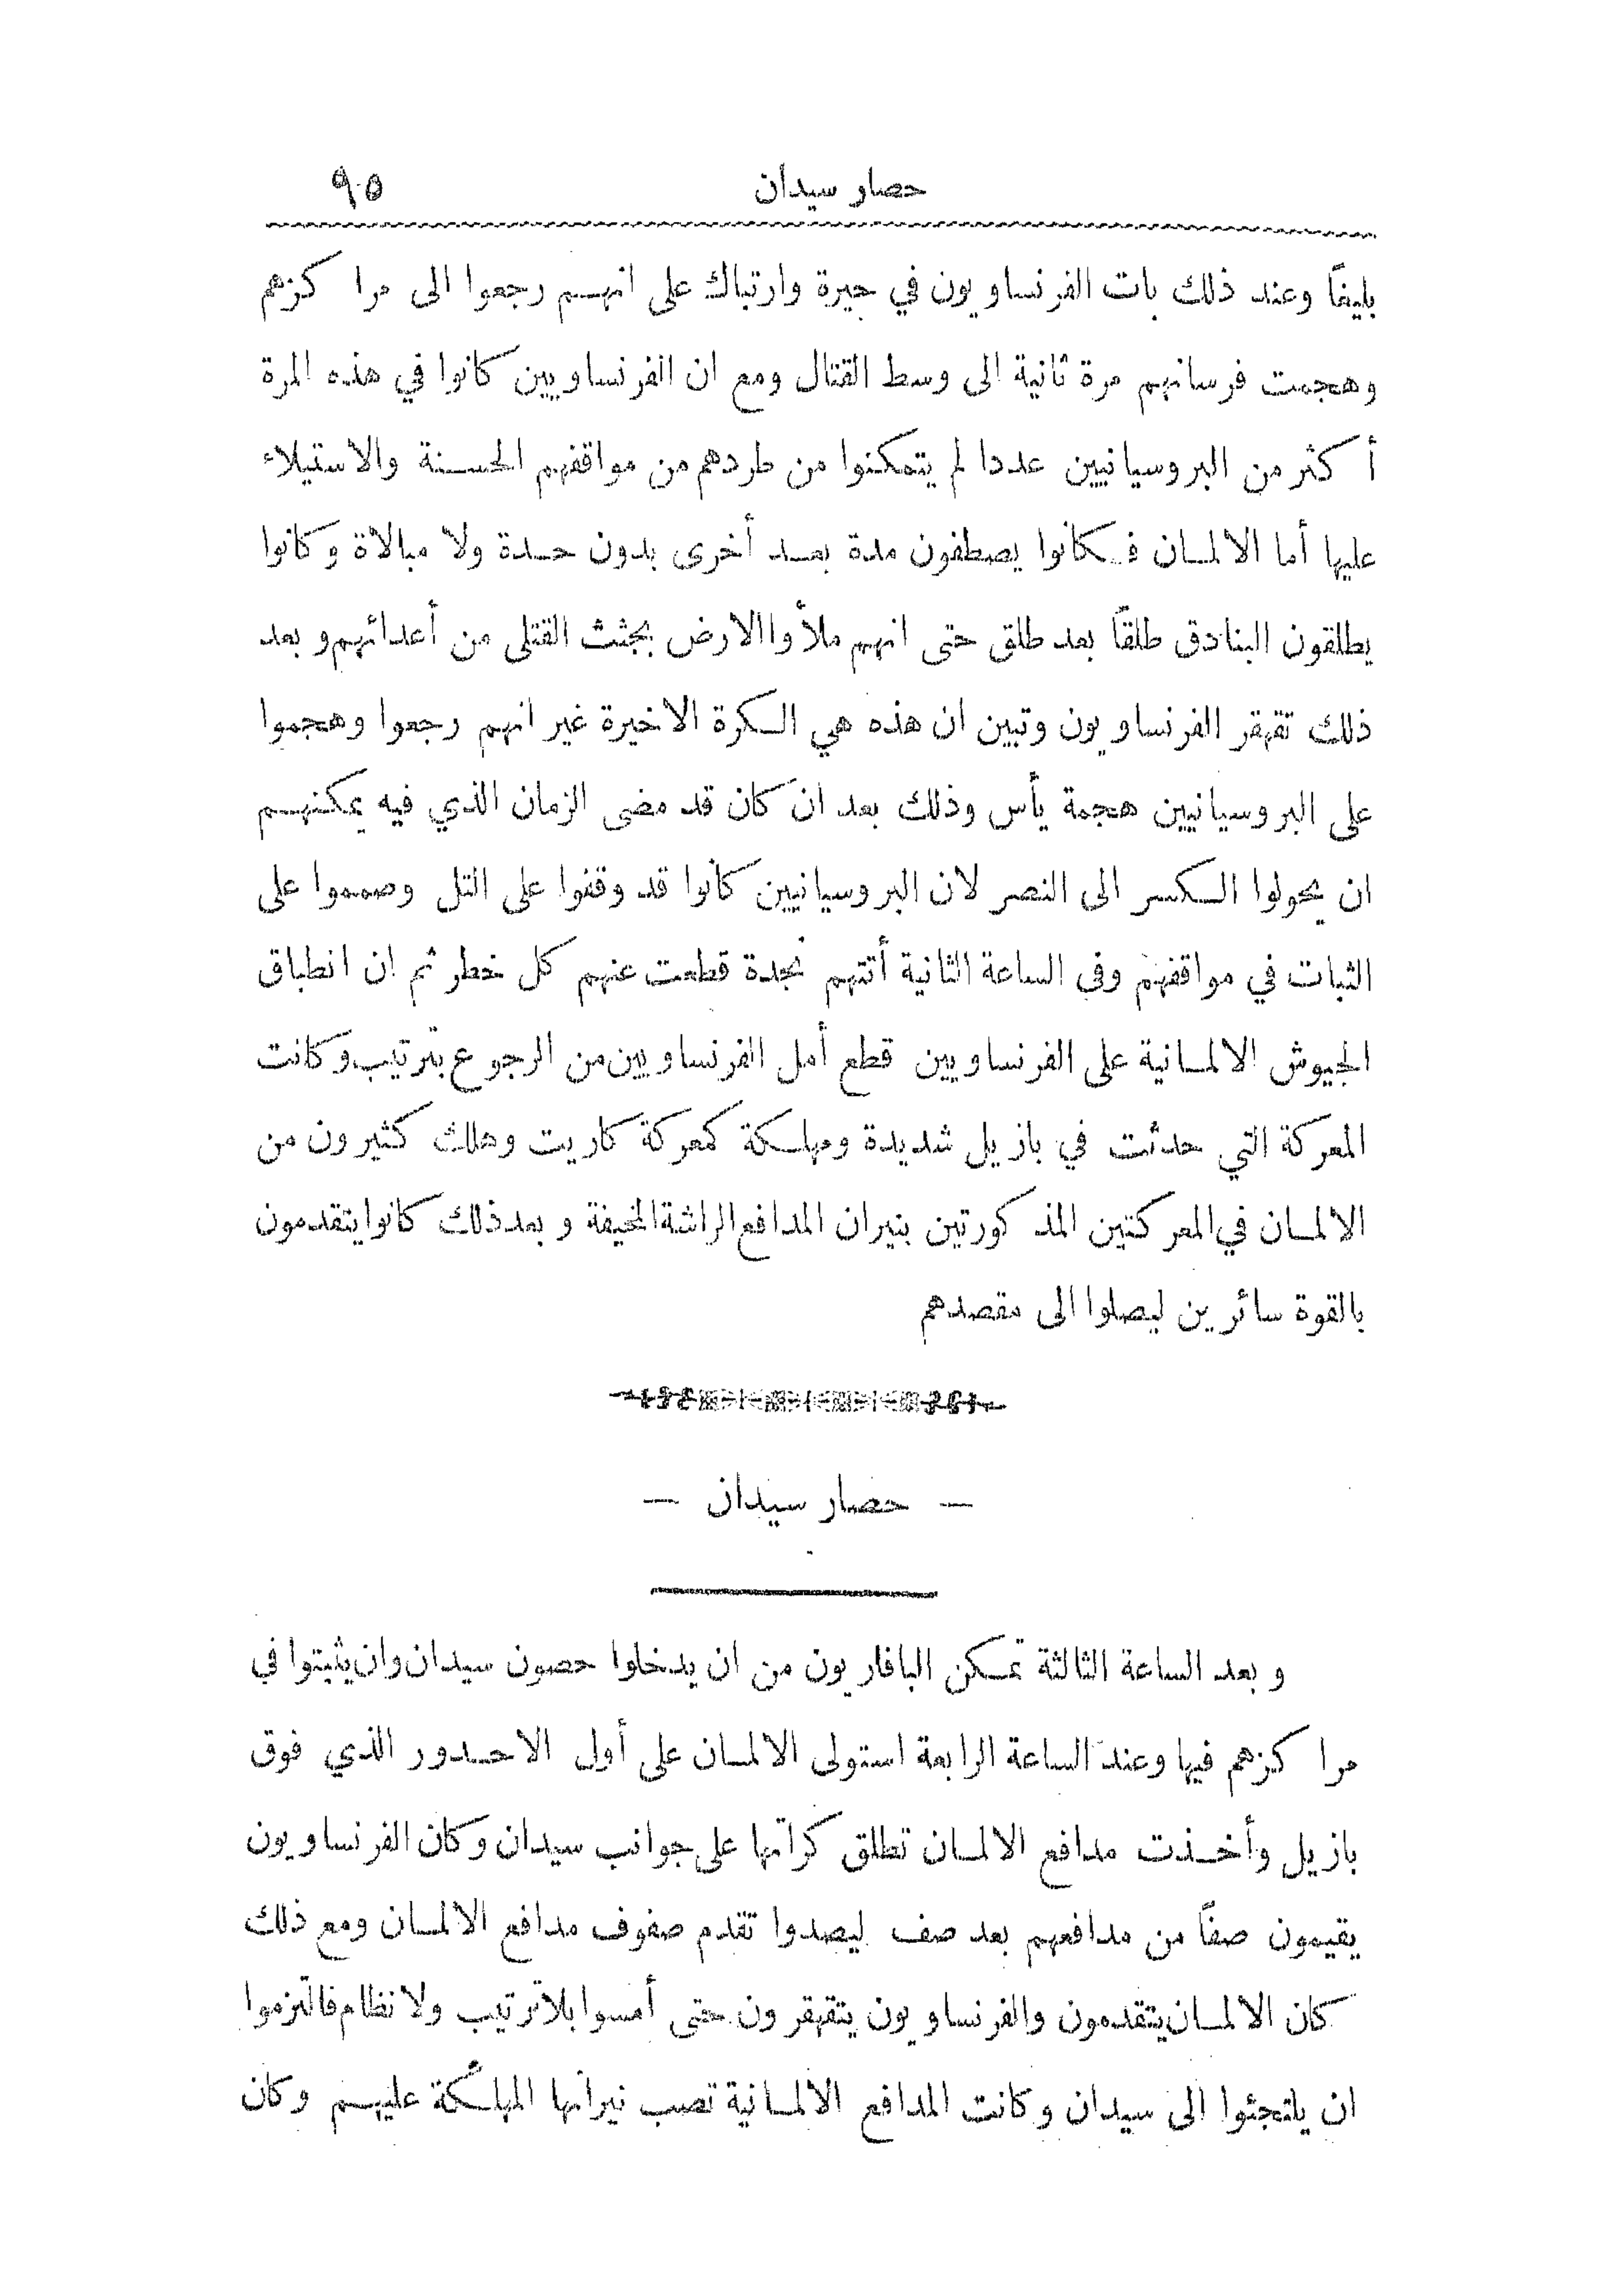 حصار سيدان ٩٥
بليغًا وعند ذلك بات الفرنساويون في حيرة وارتباك على انهم رجعوا الى مراكزهم
وهجمت فرسانهم مرة ثانية الى وسط القتال ومع ان الفرنساويين كانوا في هذه المرة
أكثر من البروسيانيين عددا لم يتمكنوا من طردهم من مواقفهم الحسنة والاستيلاء
عليها أما الالمان فكانوا يصطفون مدة بعد أخرى بدون حدة ولا مبالاة وكانوا
يطلقون البنادق طلقًا بعد طلق حتى انهم ملأوا الارض بجثث القتلى من أعدائهم وبعد
ذلك تقهقر الفرنساويون وتبين ان هذه هي الكرة الاخيرة غير انهم رجعوا وهجموا
على البروسيانيين هجمة يأس وذلك بعد ان كان قد مضى الزمان الذي فيه يمكنهم
ان يحولوا الكسر الى النصر لان البروسيانيين كانوا قد وقفوا على التل وصمموا على
الثبات في مواقفهم وفى الساعة الثانية أتتهم نجدة قطعت عنهم كل خطر ثم ان انطباق
الجيوش الالمانية على الفرنساويين قطع أمل الفرنساويين من الرجوع بترتيب وكانت
المعركة التي حدثت في بازيل شديدة ومهلكة كمعركة كاريت وهلك كثيرون من
الالمان في المعركتين المذكورتين بنيران المدافع الراشة المخيفة وبعد ذلك كانوا يتقدمون
بالقوة سائرين ليصلوا الى مقصدهم
— حصار سيدان —
وبعد الساعة الثالثة تمكن البافاريون من ان يدخلوا حصون سيدان وان يثبتوا في
مراكزهم فيها وعند الساعة الرابعة استولى الالمان على أول الاحدور الذي فوق
بازيل وأخذت مدافع الالمان تطلق كراتها على جوانب سيدان وكان الفرنساويون
يقيمون صفًا من مدافعهم بعد صف ليصدوا تقدم صفوف مدافع الالمان ومع ذلك
كان الالمان يتقدمون والفرنساويون يتقهقرون حتى أمسوا بلا ترتيب ولا نظام فالتزموا
ان يلتجئوا الى سيدان وكانت المدافع الالمانية تصب نيرانها المهلكة عليهم وكان